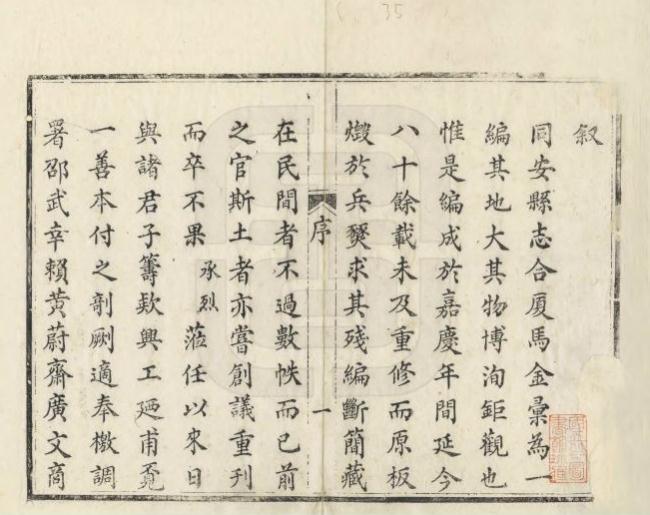 叙
同安縣志合厦馬金彙為一
編其地大其物博洵鉅觀也
惟是編成於嘉慶年間延今
八十餘載未及重修而原板
燬於兵燹求其残編斷簡藏
序 一
在民間者不過數帙而已前
之官斯土者亦嘗創議重刊
而卒不果承烈蒞任以來日
與諸君子籌欵興工廼甫覔
一善本付之剞劂適奉檄調
署邵武幸賴黄蔚齋廣文商
35